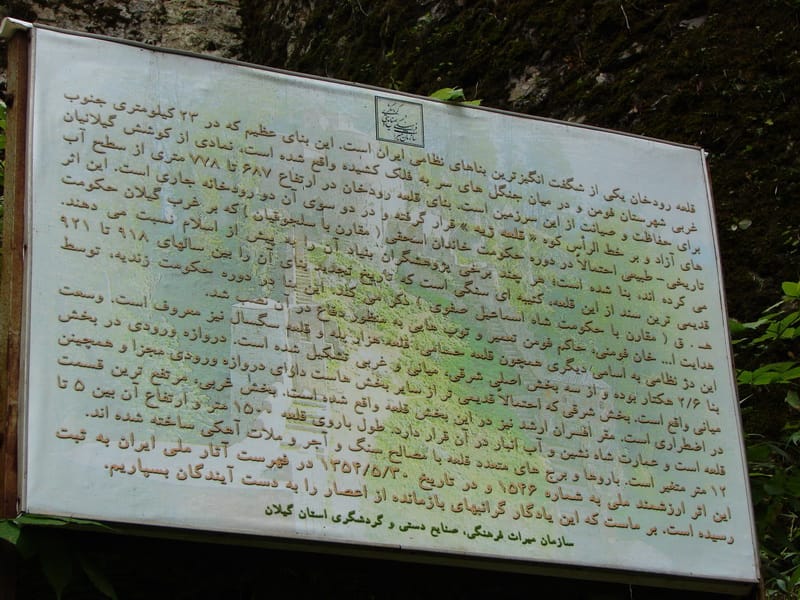 قلعه رودخان یکی از شگفت انگیزترین بناهای نظامی ایران است. این بنای عظیم که در ۲۳ کیلومتری جنوب
غربی شهرستان فومن و در میان جنگل های سر به فلک کشیده واقع شده است، نمادی از کوشش گیلانیان
برای حفاظت و صیانت از این سرزمین است. بنای قلعه رودخان در ارتفاع ۶۸۷ تا ۷۷۸ متری از سطح آب
های آزاد و بر خط الرأس کوه « قلعه » قرار گرفته و در دو سوی آن دو رودخانه جاری است. این اثر
تاریخی- طبیعی احتمالاً در دوره حکومت خاندان اسحقی ( مقارن با ) که بر غرب گیلان حکومت
می کرده اند، بنا شده است؛ هر چند برخی پژوهشگران بنیاد آن را به پیش از اسلام نسبت می دهند.
قدیمی ترین سند از این قلعه، کتیبه ای سنگی است که تاریخ تجدید بنای آن را بین سالهای ۹۱۸ تا ۹۲۱
هـ . ق ( مقارن با حکومت شاه اسماعیل صفوی ) ذکر می کند. این بنا در دوره حکومت زندیه، توسط
هدایت ا... خان فومنی، حاکم فومن تعمیر و توپ هایی به منظور دفاع در آن نصب شد.
این دژ نظامی به اسامی دیگری همچون قلعه حسامی، قلعه هزار پله و قلعه سگسال نیز معروف است. وسعت
بنا ۲/۶ هکتار بوده و از سه بخش اصلی شرقی، میانی و غربی تشکیل شده است. دروازه ورودی در بخش
میانی واقع است. بخش شرقی که احتمالاً قدیمی تر از سایر بخش هاست دارای دروازه ورودی مجزا و همچنین
در اضطراری است. مقر افسران ارشد نیز در این بخش قلعه واقع شده است. بخش غربی، مرتفع ترین قسمت
قلعه است و عمارت شاه نشین و آب انبار در آن قرار دارد. طول باروی قلعه ۱۵۰۰ متر و ارتفاع آن بین ۵ تا
۱۲ متر متغیر است. باروها و برج های متعدد قلعه با مصالح سنگ و آجر و ملات آهکی ساخته شده اند.
این اثر ارزشمند ملی به شماره ۱۵۴۶ و در تاریخ ۱۳۵۴/۵/۳۰ در فهرست آثار ملی ایران به ثبت
رسیده است. بر ماست که این یادگار گرانبهای بازمانده از اعصار را به دست آیندگان بسپاریم.
سازمان میراث فرهنگی، صنایع دستی و گردشگری استان گیلان